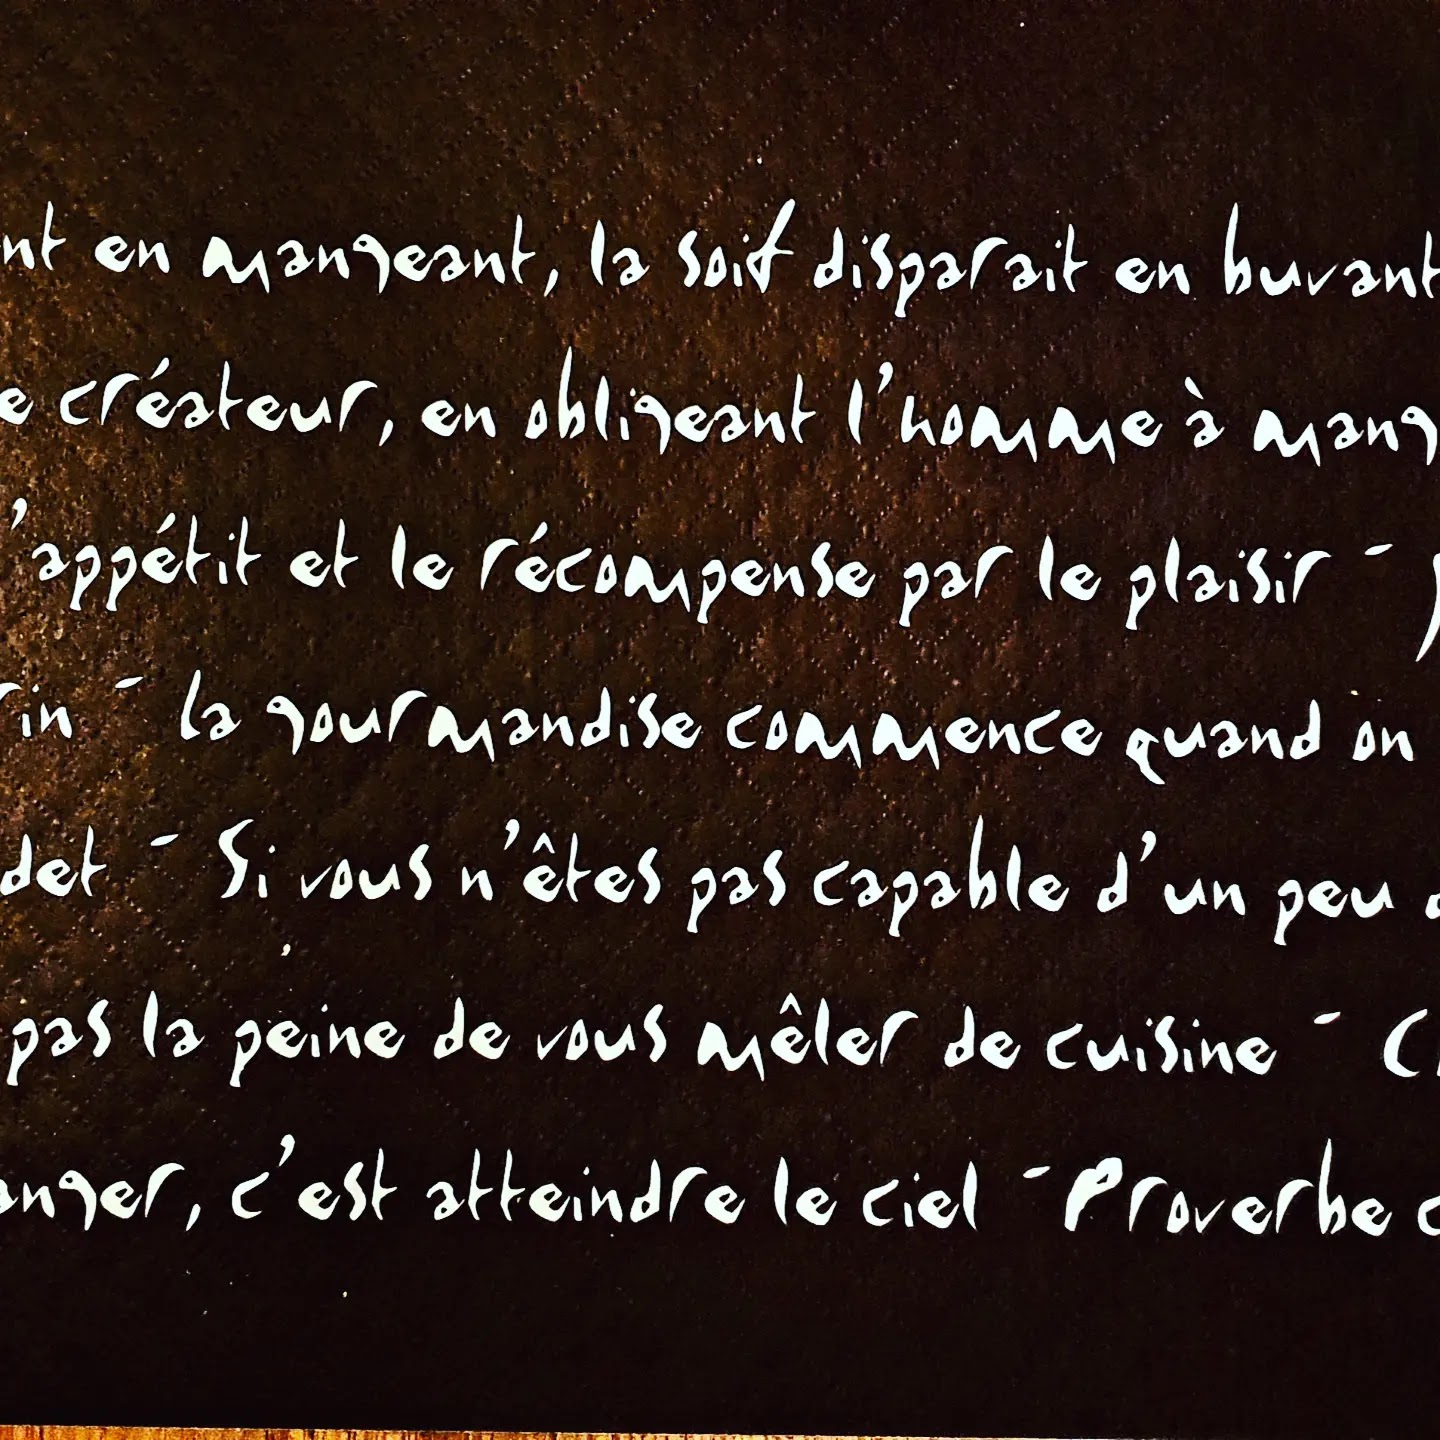 nt en mangeant, la soif disparait en buvant
e créateur, en obligeant l'homme à mang
'appétit et le récompense par le plaisir -
rin - la gourmandise commence quand on
det - Si vous n'êtes pas capable d'un peu d
pas la peine de vous mêler de cuisine - C
anger, c'est atteindre le ciel - Proverbe c